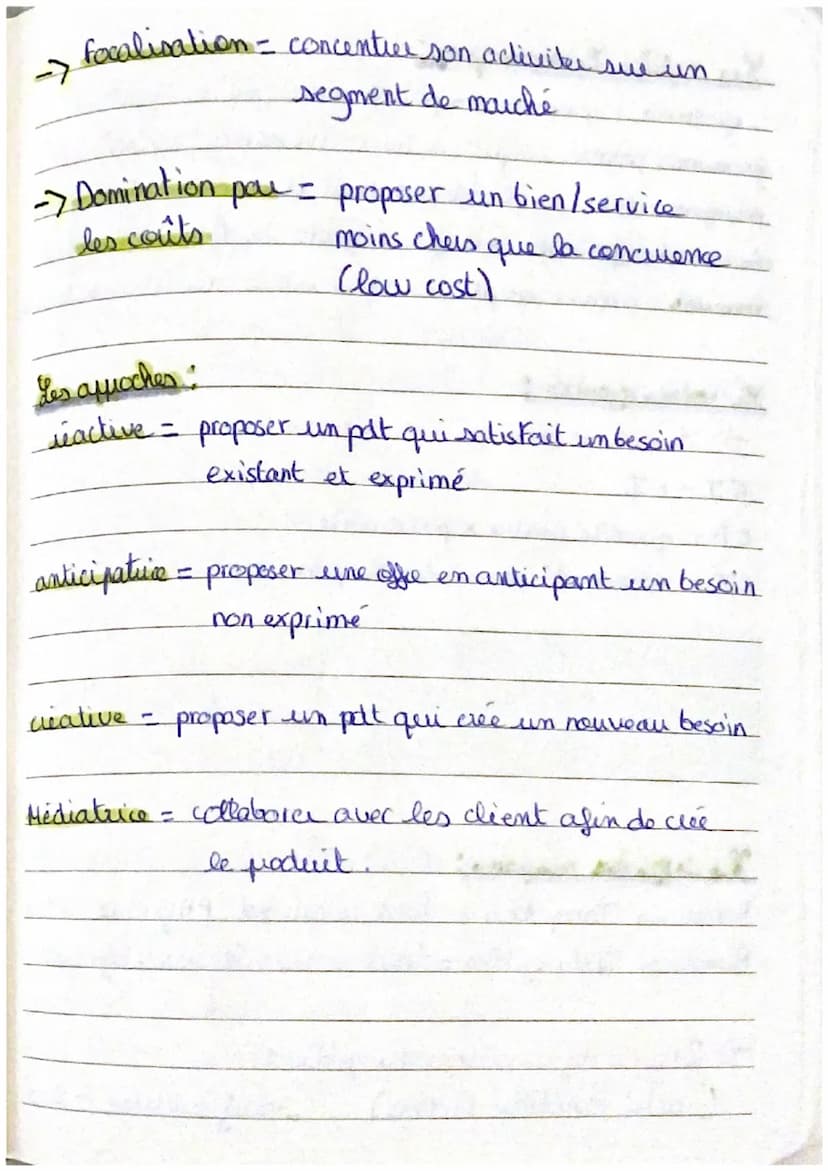 -> focalisation = concentrer son activiter sur un
segment de marché
-> Domination par = proposer un bien/service
les coûts moins chers que la concurrence
(low cost)
Les approches :
réactive = proposer un pdt qui satisfait un besoin
existant et exprimé
anticipatrice = proposer une offre en anticipant un besoin
non exprimé
créative = proposer un pdt qui crée un nouveau besoin
Médiatrice = collaborer avec les client afin de créé
le produit.